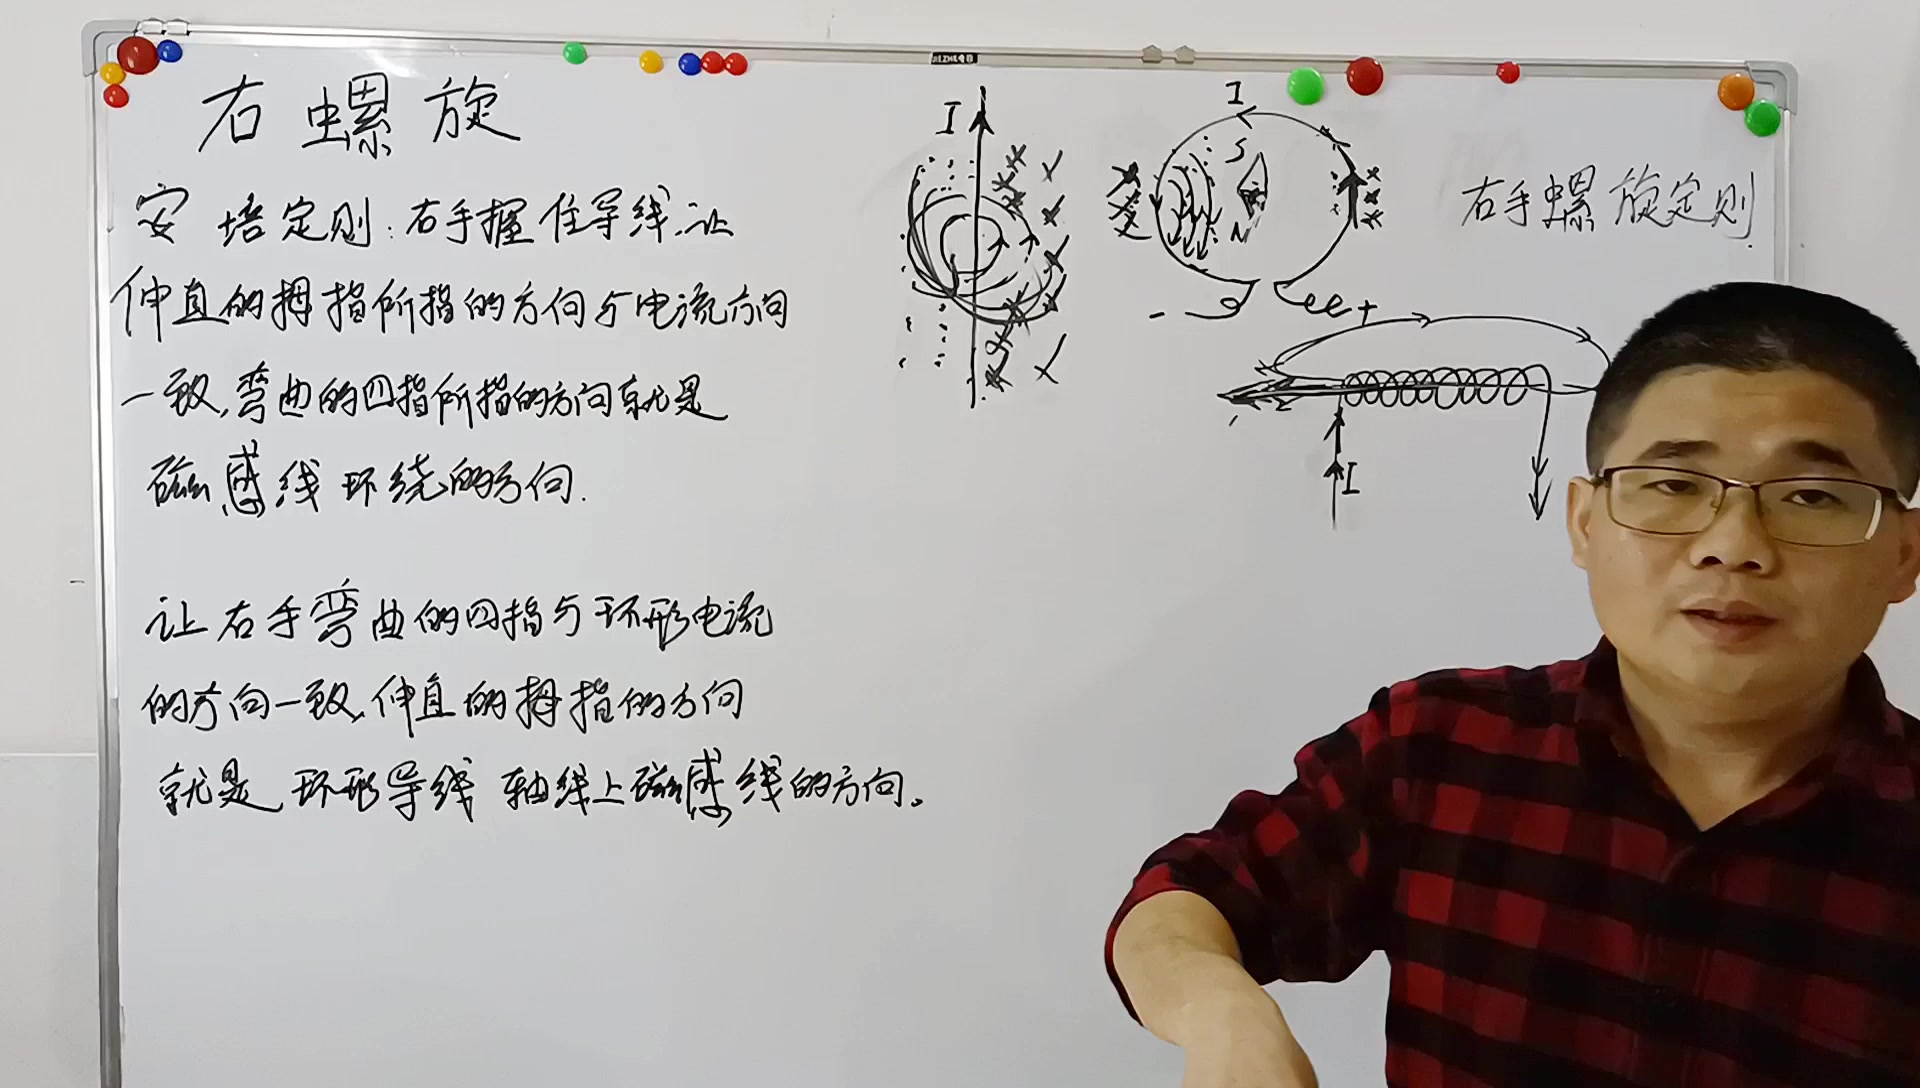 右螺旋
安培定则:右手握住导线,让
伸直的拇指所指的方向与电流方向
一致,弯曲的四指所指的方向就是
磁感线环绕的方向.
让右手弯曲的四指与环形电流
的方向一致,伸直的拇指的方向
就是环形导线轴线上磁感线的方向。
I
I
S
N
- +
右手螺旋定则
I